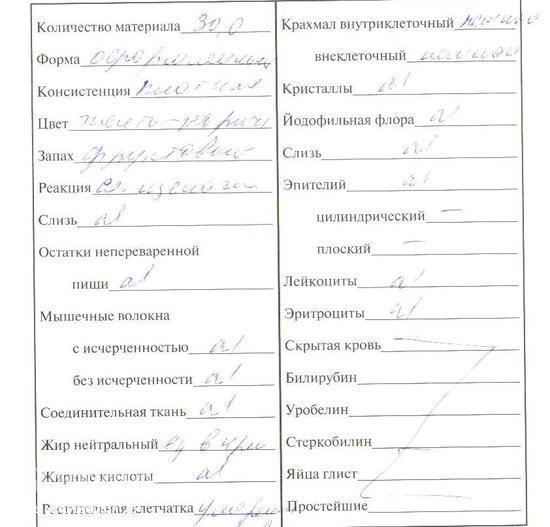 Количество материала 30,0
Форма оформленный
Консистенция плотная
Цвет желто-коричн
Запах фруктовый
Реакция сл. щелочн
Слизь а/
Остатки непереваренной
пищи а/
Мышечные волокна
с исчерченностью а/
без исчерченности а/
Соединительная ткань а/
Жир нейтральный ед в
Жирные кислоты а/
Растительная клетчатка умерен
Крахмал внутриклеточный
внеклеточный
Кристаллы а/
Йодофильная флора а/
Слизь а/
Эпителий а/
цилиндрический —
плоский —
Лейкоциты а/
Эритроциты а/
Скрытая кровь
Билирубин
Уробелин
Стеркобилин
Яйца глист
Простейшие